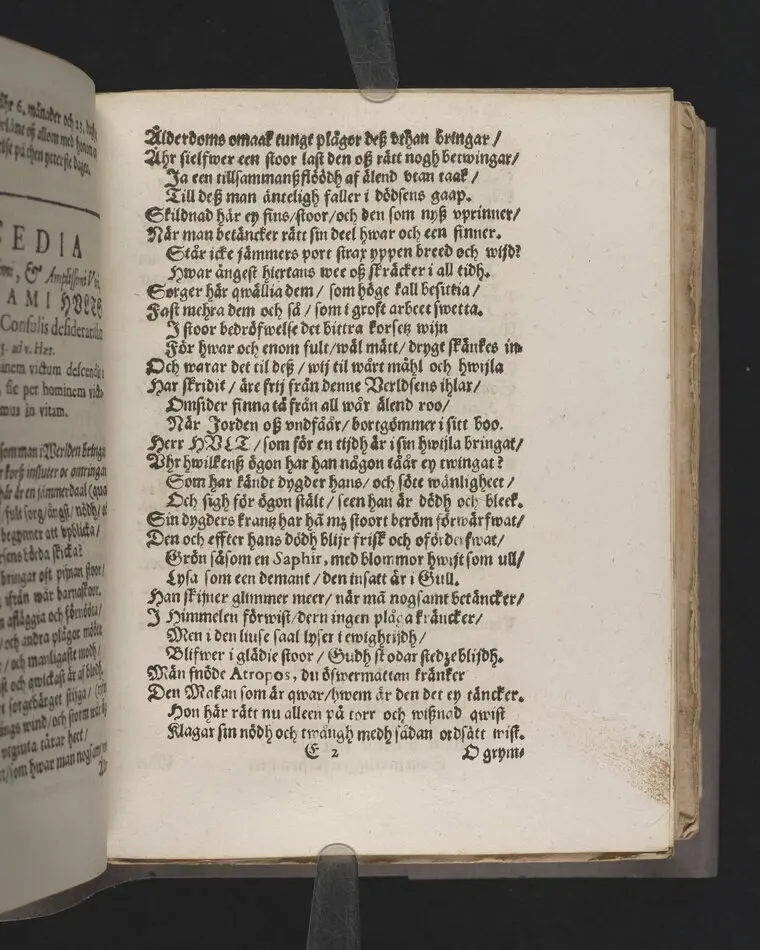 Ahr 6. månader och 23.
med
på then
EDIA
& Ampliſſimi
AMI HULT
Conſulis deſideratiſſi
inem victum deſcendi
ſic per hominem
mus in vitam.
ſom man i Werlden bringa
korß inſluter oc omringar
här är en jämmerdaal
full ſorg/ångſt/nödh/
begynner att vpblicka/
börda ſkicka?
bringar oſt pijnan ſtoor/
ifrån wår
afläggia och förnööta/
och andra plågor mööta
och manligaſte modh/
och qwickaſt är af blodh.
ſorgebärget ſtijga/
wind/och ſtorm
vtgiuta tårar heet/
ſom hwar man
Ålderdoms omaak tungt plågor deß vthan bringar/
Ähr ſielfwer een ſtoor laſt den oß rätt nogh betwingar/
Ja een tillſammanßflöödh af älend vtan taak/
Till deß man änteligh faller i dödſens gaap.
Skildnad här ey fins/ſtoor/och den ſom nyß vprinner/
När man betäncker rätt ſin deel hwar och een finner.
Står icke jämmers port ſtrax yppen breed och wijd?
Hwar ångeſt hiertans wee oß ſkräcker i all tidh.
Sorger här qwällia dem/ ſom höge kall beſittia/
Faſt mehra dem och ſå/ ſom i groft arbeet ſwetta.
I ſtoor bedröfwelſe det bittra korſetz wijn
För hwar och enom fult/wäl mätt/ drygt ſkänkes in.
Och warar det til deß/ wij til wårt måhl och hwijla
Har ſkridit/ äre frij från denne Verldſens ihlar/
Omſider finna tå från all wår älend roo/
När Jorden oß vndfåår/ bortgömmer i ſitt boo.
Herr HVLT/ ſom för en tijdh är i ſin hwijla bringat/
Vhr hwilkenß ögon har han någon tåår ey twingat?
Som har kändt dygder hans/ och ſött wänligheet/
Och ſigh för ögon ſtält/ ſeen han är dödh och bleek.
Sin dygders krantz har hā mz ſtoort beröm förwärfwat/
Den och effter hans dödh blijr friſk och ofördefwat/
Grön ſåſom en Saphir, med blommor hwijt ſom ull/
Lyſa ſom een demant/ den inſatt är i Gull.
Han ſkijner glimmer meer/ när mā nogſamt betäncker/
I Himmelen förwiſt/dern ingen plåga kräncker/
Men i den liuſe ſaal lyſer i ewightijdh/
Blifwer i glädie ſtoor/ Gudh ſtodar ſtedze blijdh.
Män ſnöde Atropos, du öfwermattan kränker
Den Makan ſom är qwar/hwem är den det ey täncker.
Hon här rätt nu alleen på torr och wißnad qwiſt
Klagar ſin nödh och twångh medh ſådan ordſätt wiſt.
E 2 O grym-